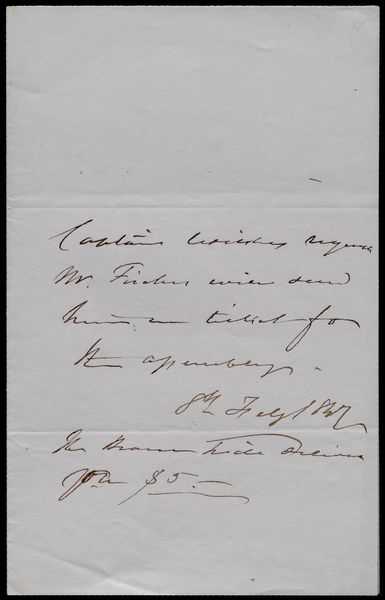 Captain Wilkes requests
Mr. Fisher will send
him a ticket for
the assembly.
8th Feby 1847
The bearer will deliver
you $5.—